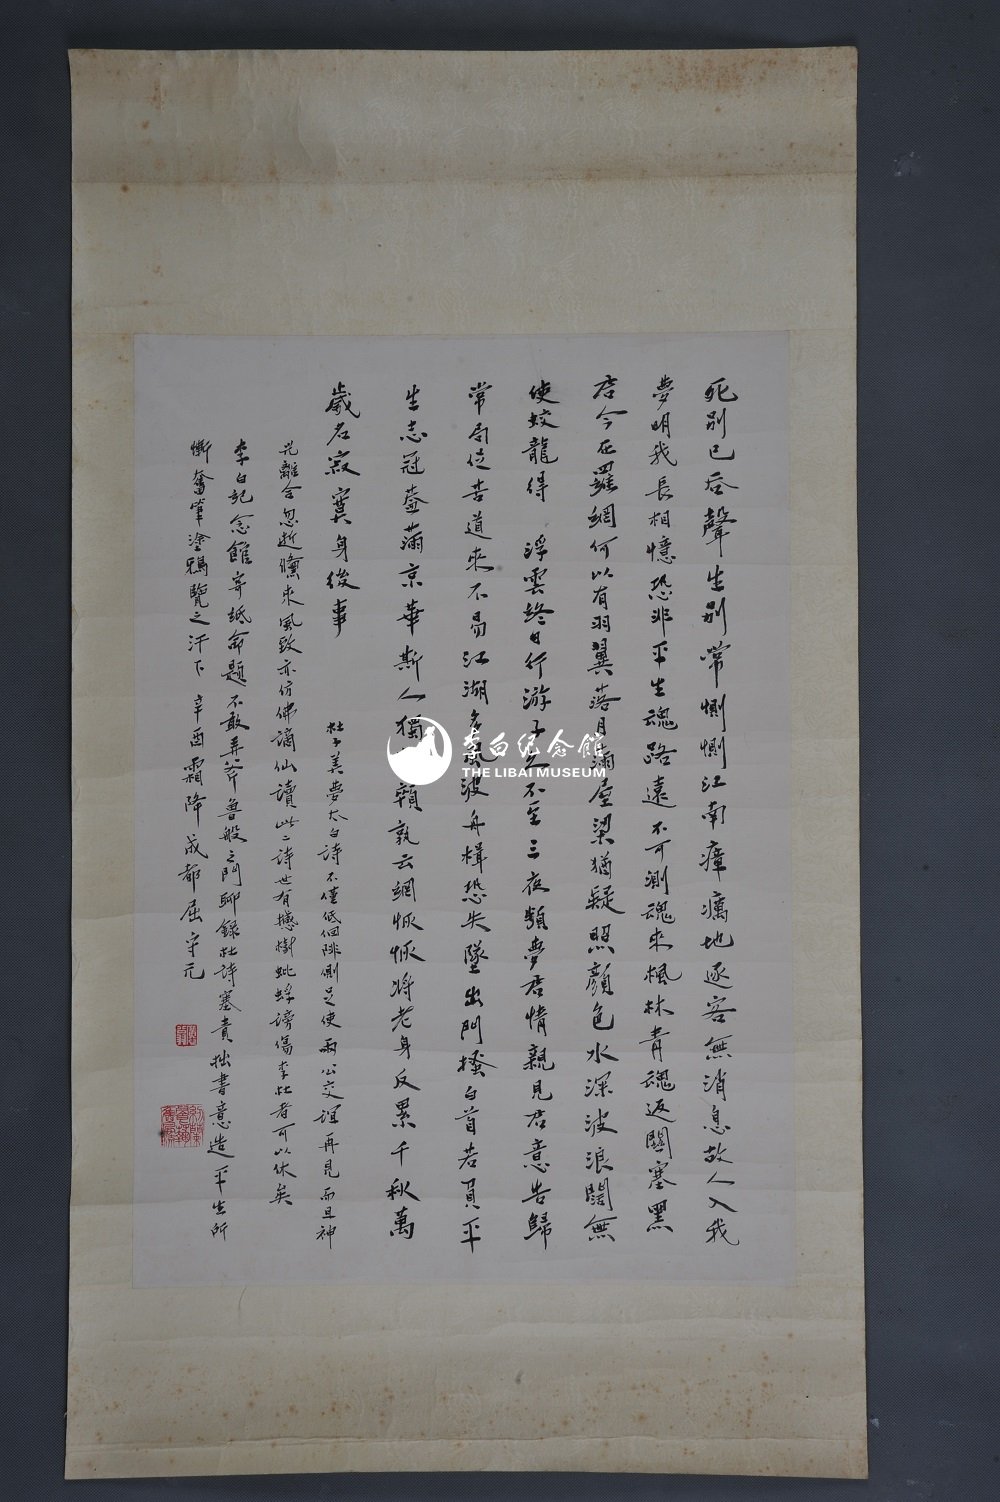 死别已吞聲生别常惻惻江南瘴癘地逐客無消息故人入我
夢明我長相憶恐非平生魂路遠不可測魂來楓林青魂返關塞黑
君今在羅網何以有羽翼落月滿屋梁猶疑照顏色水深波浪闊無
使蛟龍得 浮雲終日行游子久不至三夜頻夢君情親見君意告歸
常局促苦道來不易江湖多風波舟楫恐失墜出門搔白首若負平
生志冠蓋滿京華斯人獨顇孰云網恢恢將老身反累千秋萬
歲名寂寞身後事
杜子美夢太白詩不僅低佪悱惻足使兩公交誼再見而且神
光離合忽逝儵來風致亦仿佛謫仙讀此二詩世有撼樹蚍蜉謗傷李杜者可以休矣
李白記念館寄紙命題不敢弄斧魯般之門聊錄杜詩塞責拙書意造平生所
慚奮筆塗鴉覽之汗下 辛酉霜降成都屈守元
李白纪念館
THE LIBAI MUSEUM